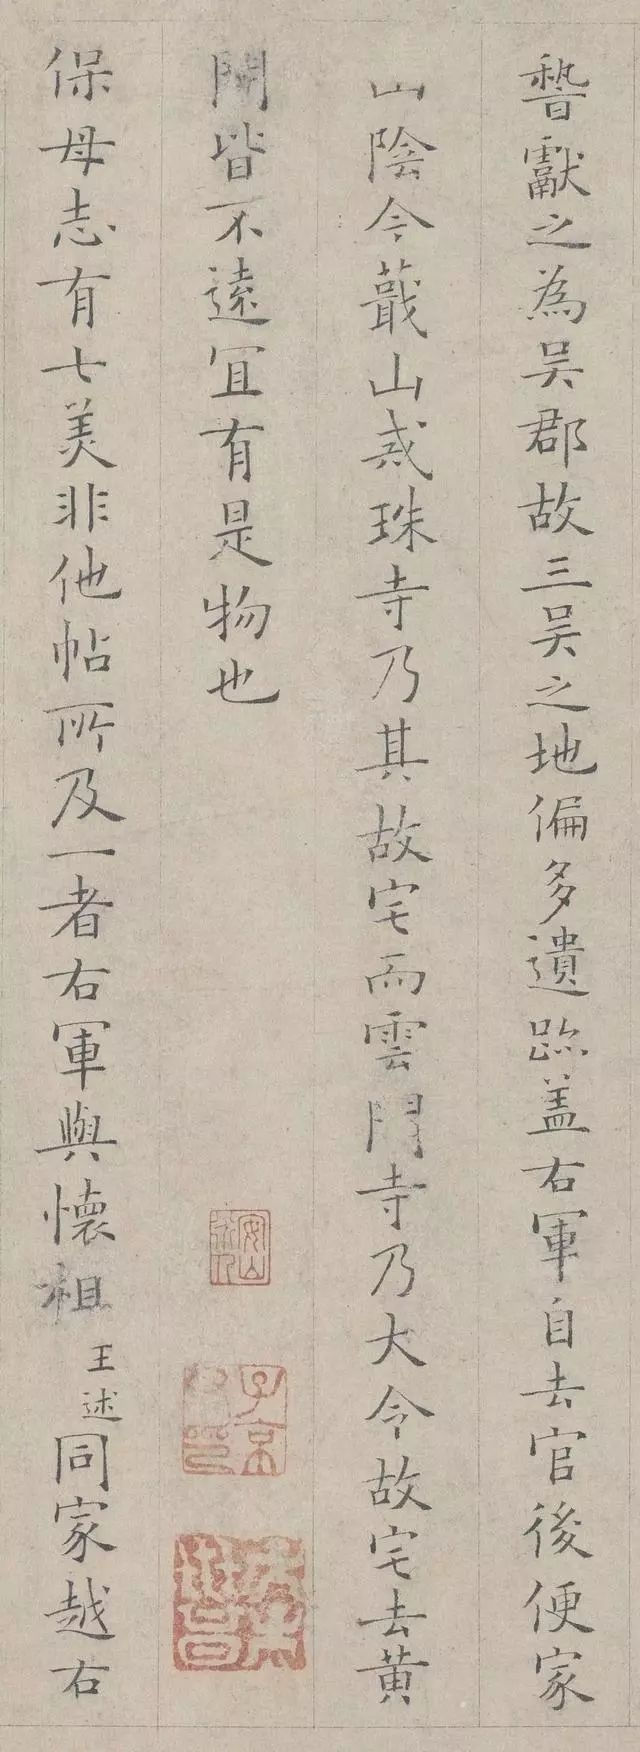 瞀獻之為吳郡故三吳之地偏多遺跡盖右軍自去官後便家
山陰今蕺山戒珠寺乃其故宅而雲門寺乃大令故宅去黄
閍皆不遠宜有是物也
保母志有七美非他帖所及一者右軍與懷祖王述同家越右
安山
子京